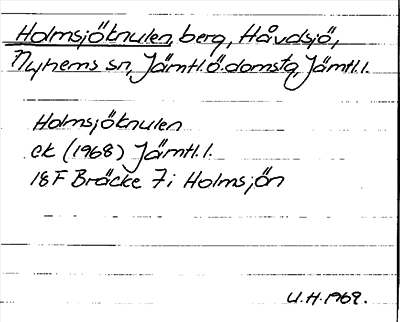 Holmsjöknulen, berg, Håvdsjö,
Nyhems sn, Jämtl. ö. domsg, Jämtl. l.
Holmsjöknulen
ek (1968) Jämtl. l.
18F Bräcke 7i Holmsjön
U.H. 1969.